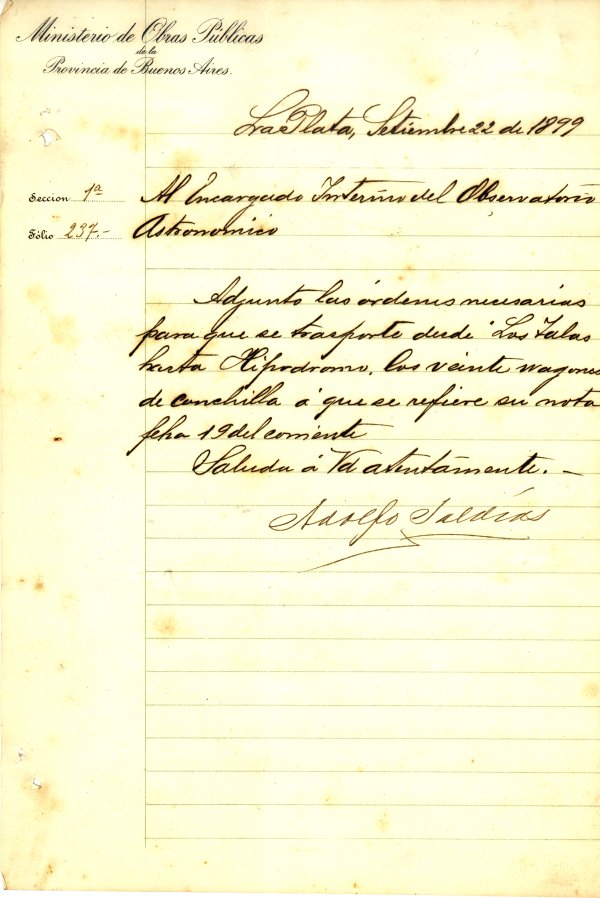 Ministerio de Obras Públicas
de la
Provincia de Buenos Aires.
La Plata, Setiembre 22 de 1899
Seccion 1ª
Fólio 237.-
Al Encargado Interino del Observatorio
Astronomico
Adjunto las órdenes necesarias
para que se trasporte desde "Los Talas
hasta Hipodromo, los veinte wagones
de conchilla á que se refiere su nota
fcha 19 del corriente
Saluda á Vd atentamente. —
Adolfo Saldías